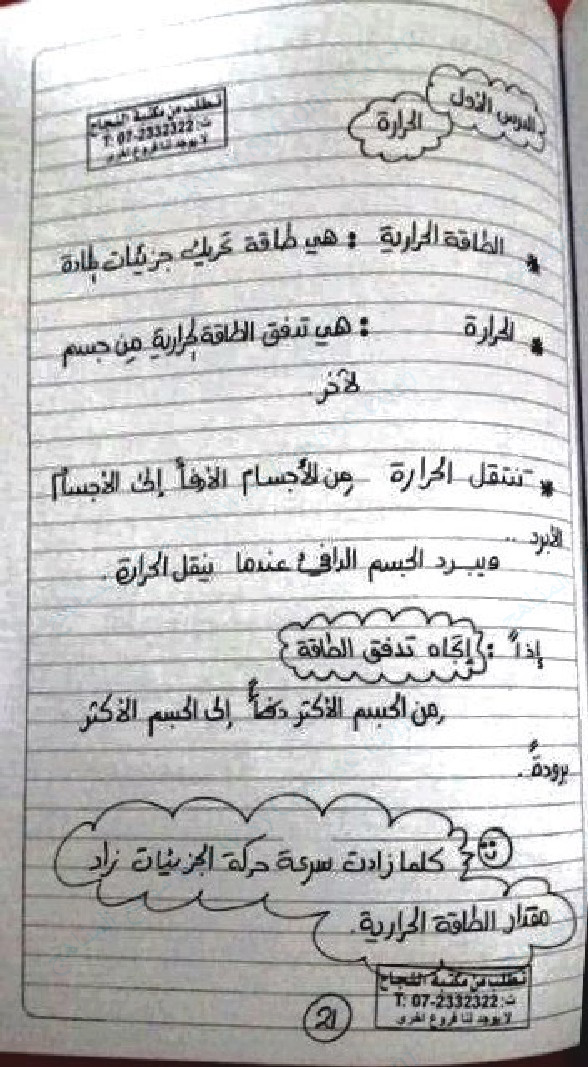 الدرس الأول
الحرارة
تطلب من مكتبة النجاح
ت: 07-2332322 :T
لا يوجد لنا فروع اخرى
* الطاقة الحرارية : هي طاقة تحريك جزيئات المادة
* الحرارة : هي تدفق الطاقة الحرارية من جسم
لآخر .
* تنتقل الحرارة من الأجسام الأدفأ إلى الأجسام
الأبرد ..
ويبرد الجسم الدافئ عندما ينقل الحرارة .
إذاً : إتجاه تدفق الطاقة
من الجسم الأكثر دفئاً إلى الجسم الأكثر
برودةً .
كلما زادت سرعة حركة الجزيئات زاد
مقدار الطاقة الحرارية .
تطلب من مكتبة النجاح
ت: 07-2332322 :T
لا يوجد لنا فروع اخرى
21